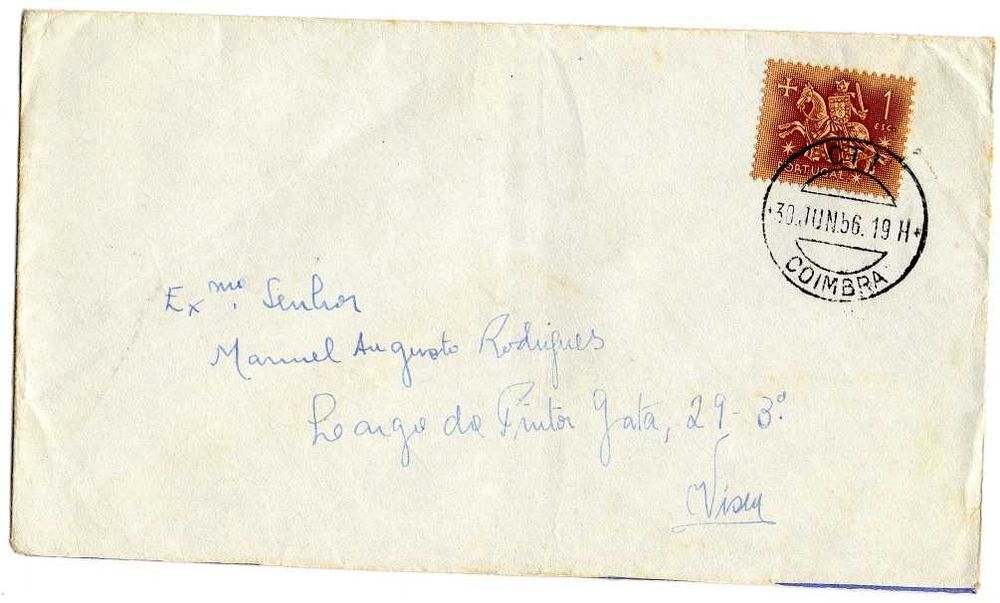 1
ESC.
PORTUGAL
CTT
30.JUN.56.19 H
COIMBRA
Exmo. Senhor
Manuel Augusto Rodrigues
Largo do Pintor Gata, 29-3º
Viseu